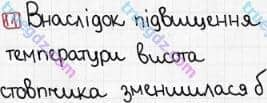 81 Внаслідок підвищення
температури висота
стовпчика зменшилася б